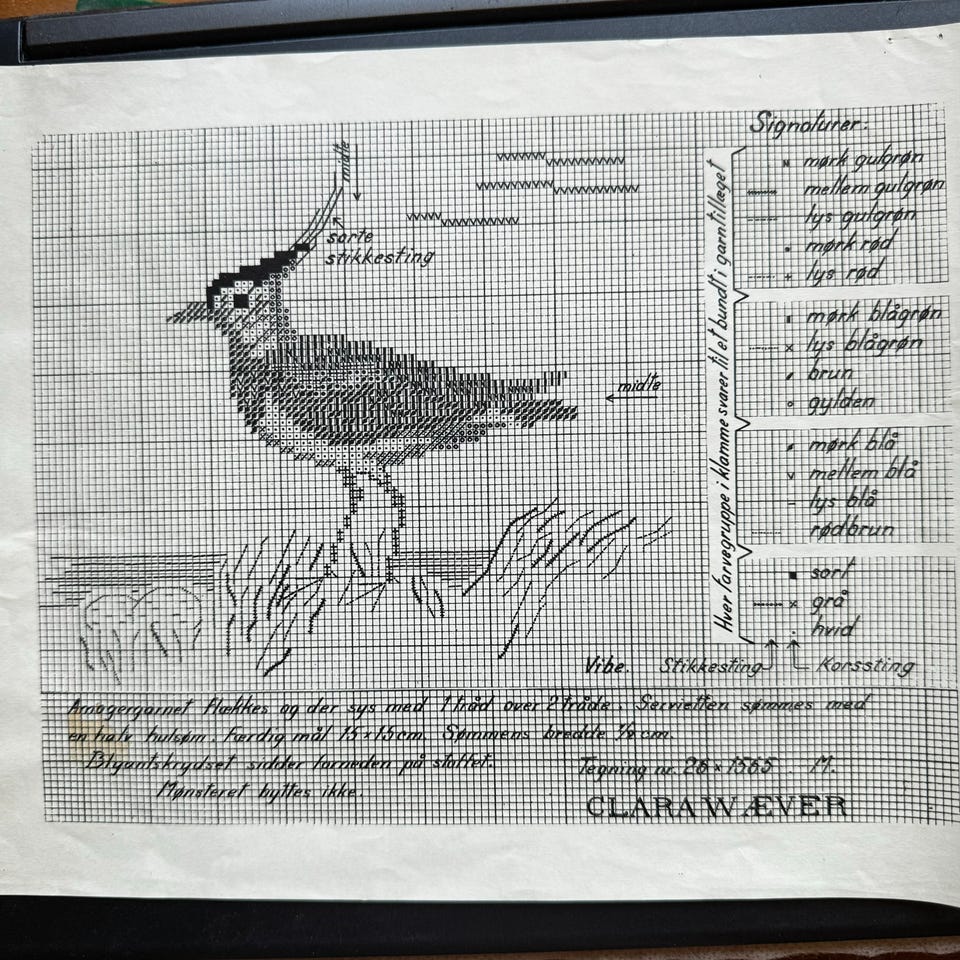 Signaturer:
midte
mørk gulgrøn
mellem gulgrøn
lys gulgrøn
mørk rød
lys rød
sorte
stikkesting
mørk blågrøn
lys blågrøn
brun
gylden
midte
mørk blå
mellem blå
lys blå
rødbrun
sort
grå
hvid
Hver farvegruppe i klamme svarer til et bundt i garntillæget
Vibe. Stikkesting Korssting
Amagergarnet flækkes og der sys med 1 tråd over 2 tråde. Servietten sømmes med
en halv hulsøm. Færdig mål 15 x 15 cm. Sømmens bredde 1/2 cm.
Blyantskrydset sidder forneden på stoffet. Tegning nr. 26 x 1565. M.
Mønsteret byttes ikke.
CLARA WÆVER